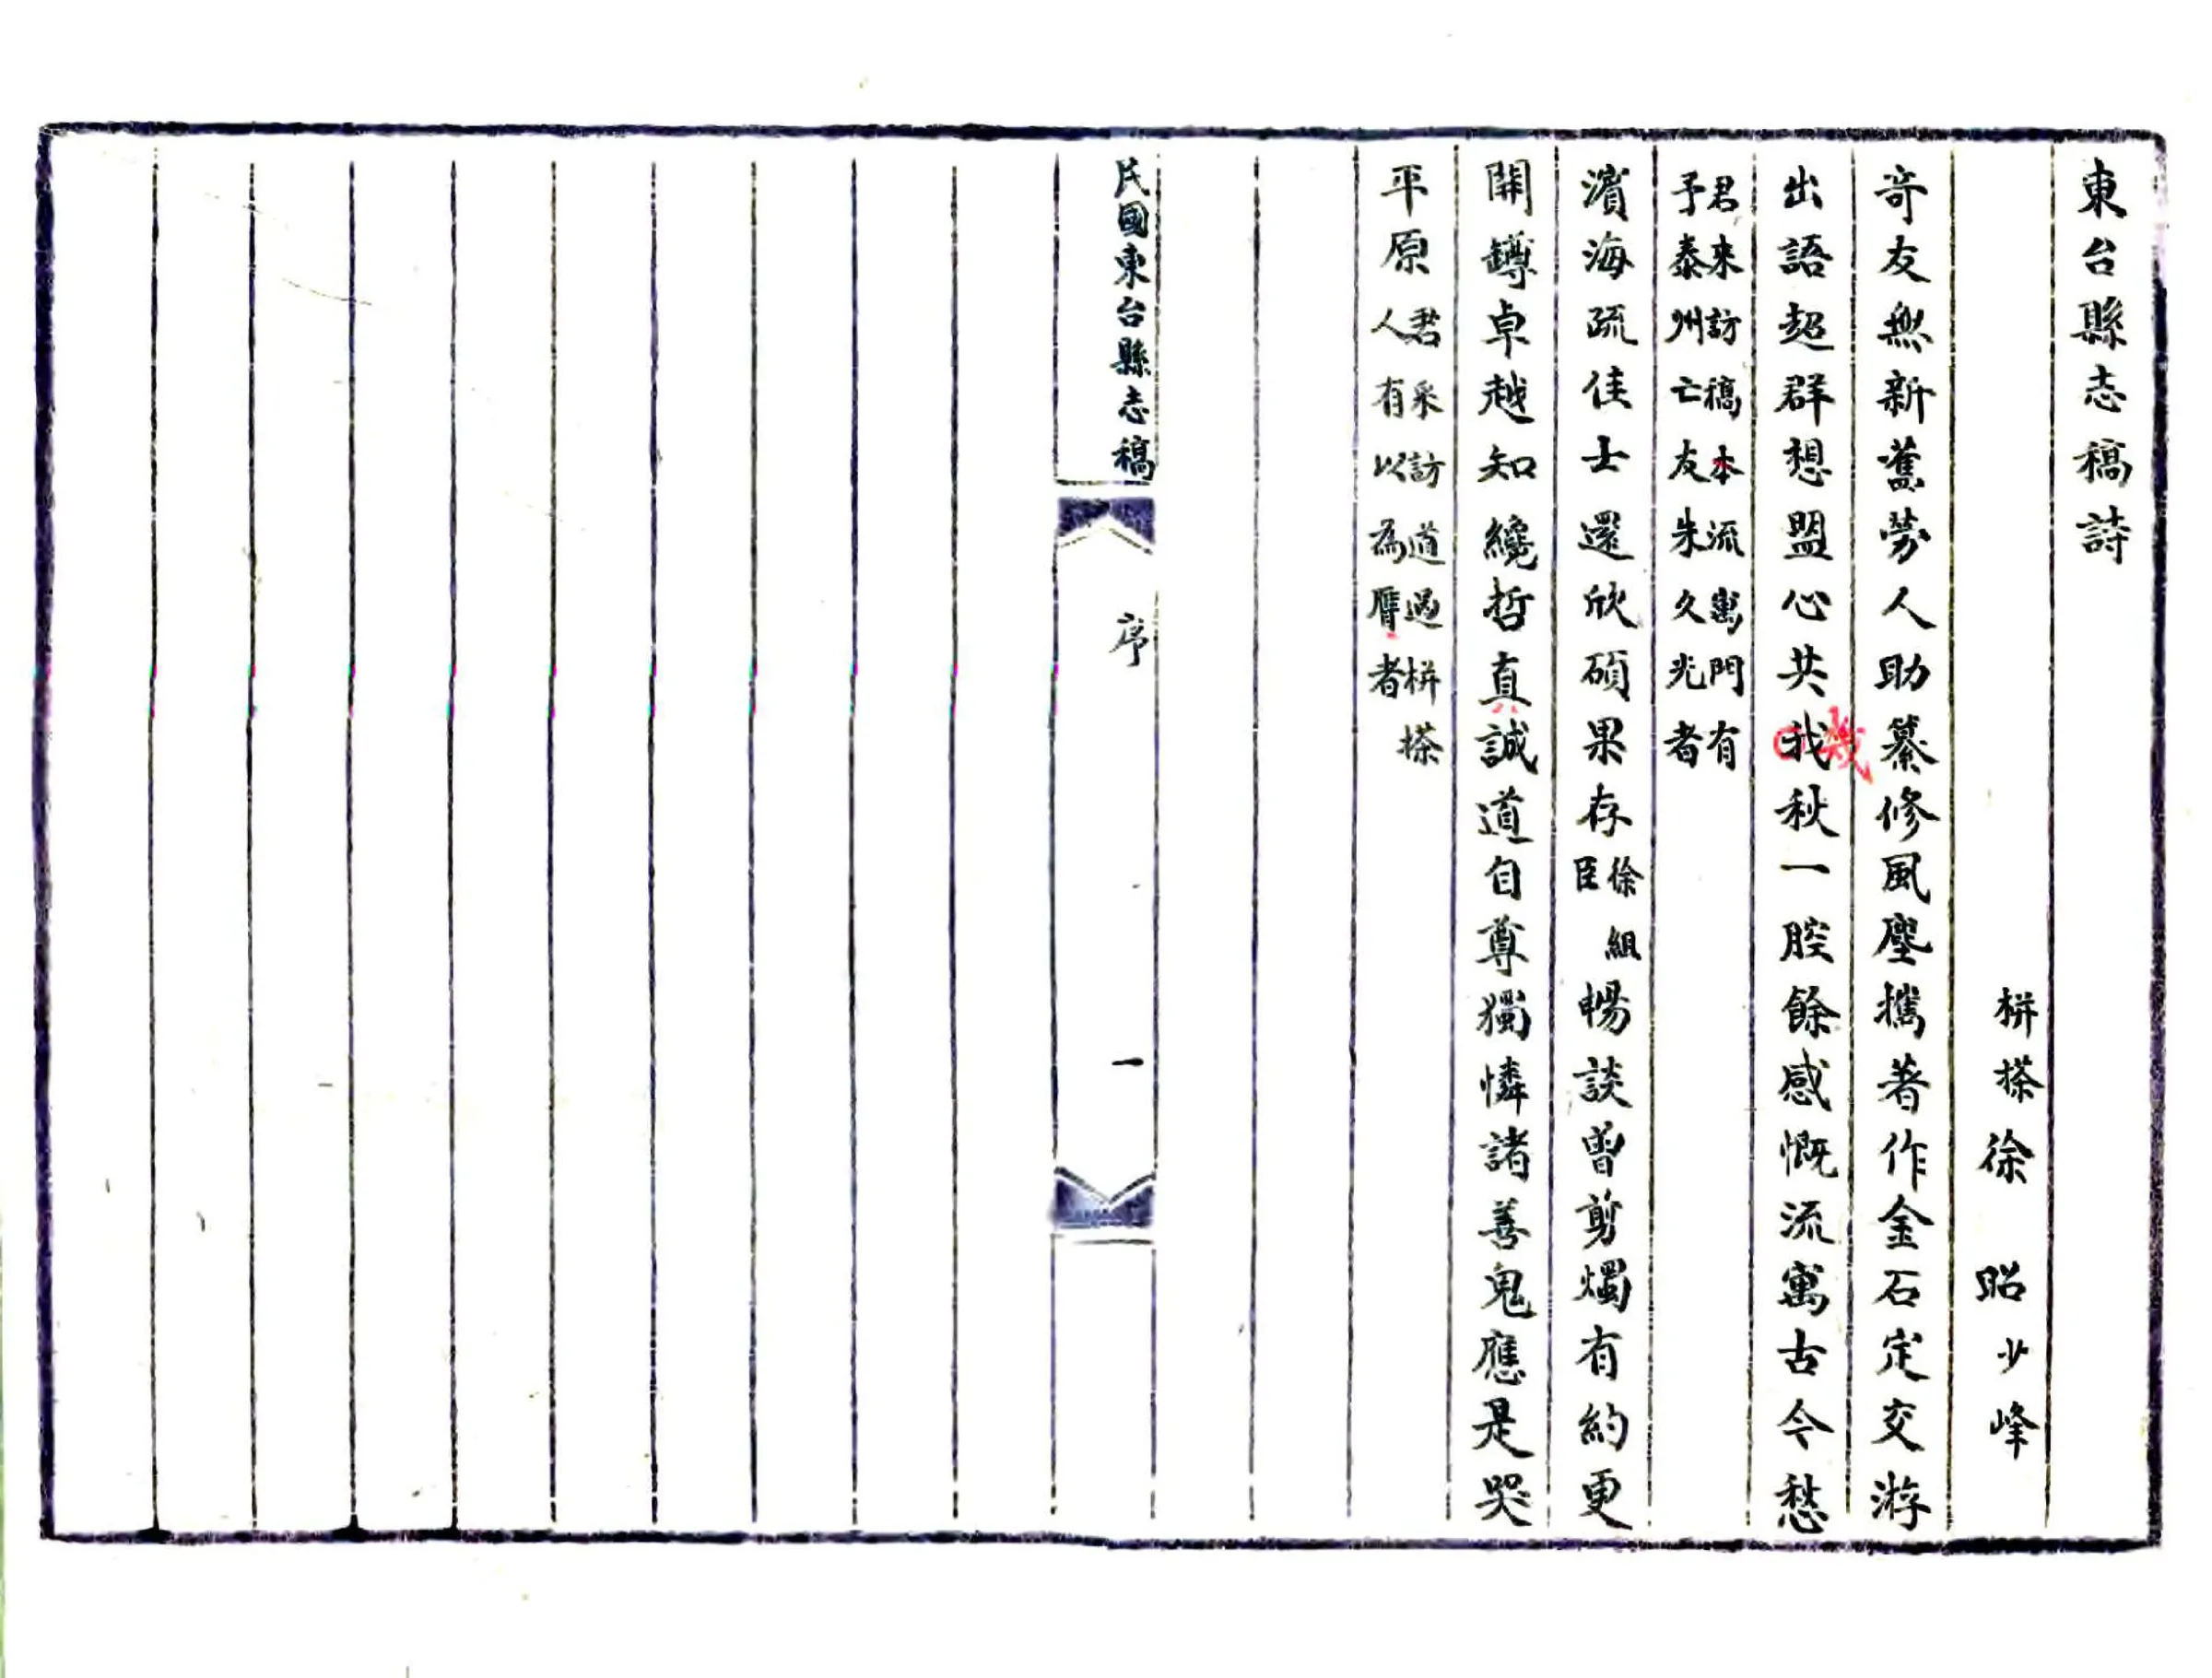 東台縣志稿詩
栟榛徐　昭少峰
奇友無新舊勞人助纂修風塵攜著作金石定交游
出語超群想盟心共我秋一腔餘感慨流寓古今愁
幾
君來訪稿本流寓門有
予泰州亡友朱久光者
濱海疏佳士還欣碩果存徐組臣暢談曾剪燭有約更
開罇卓越知纔哲真誠道自尊獨憐諸善鬼應是哭
平原君采訪道過栟榛
人有以為贗者
民國東台縣志稿
序
一